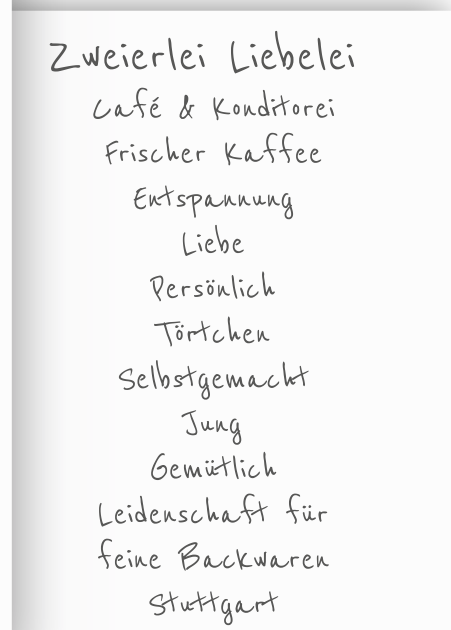 Zweierlei Liebelei
Café & Konditorei
Frischer Kaffee
Entspannung
Liebe
Persönlich
Törtchen
Selbstgemacht
Jung
Gemütlich
Leidenschaft für
feine Backwaren
Stuttgart